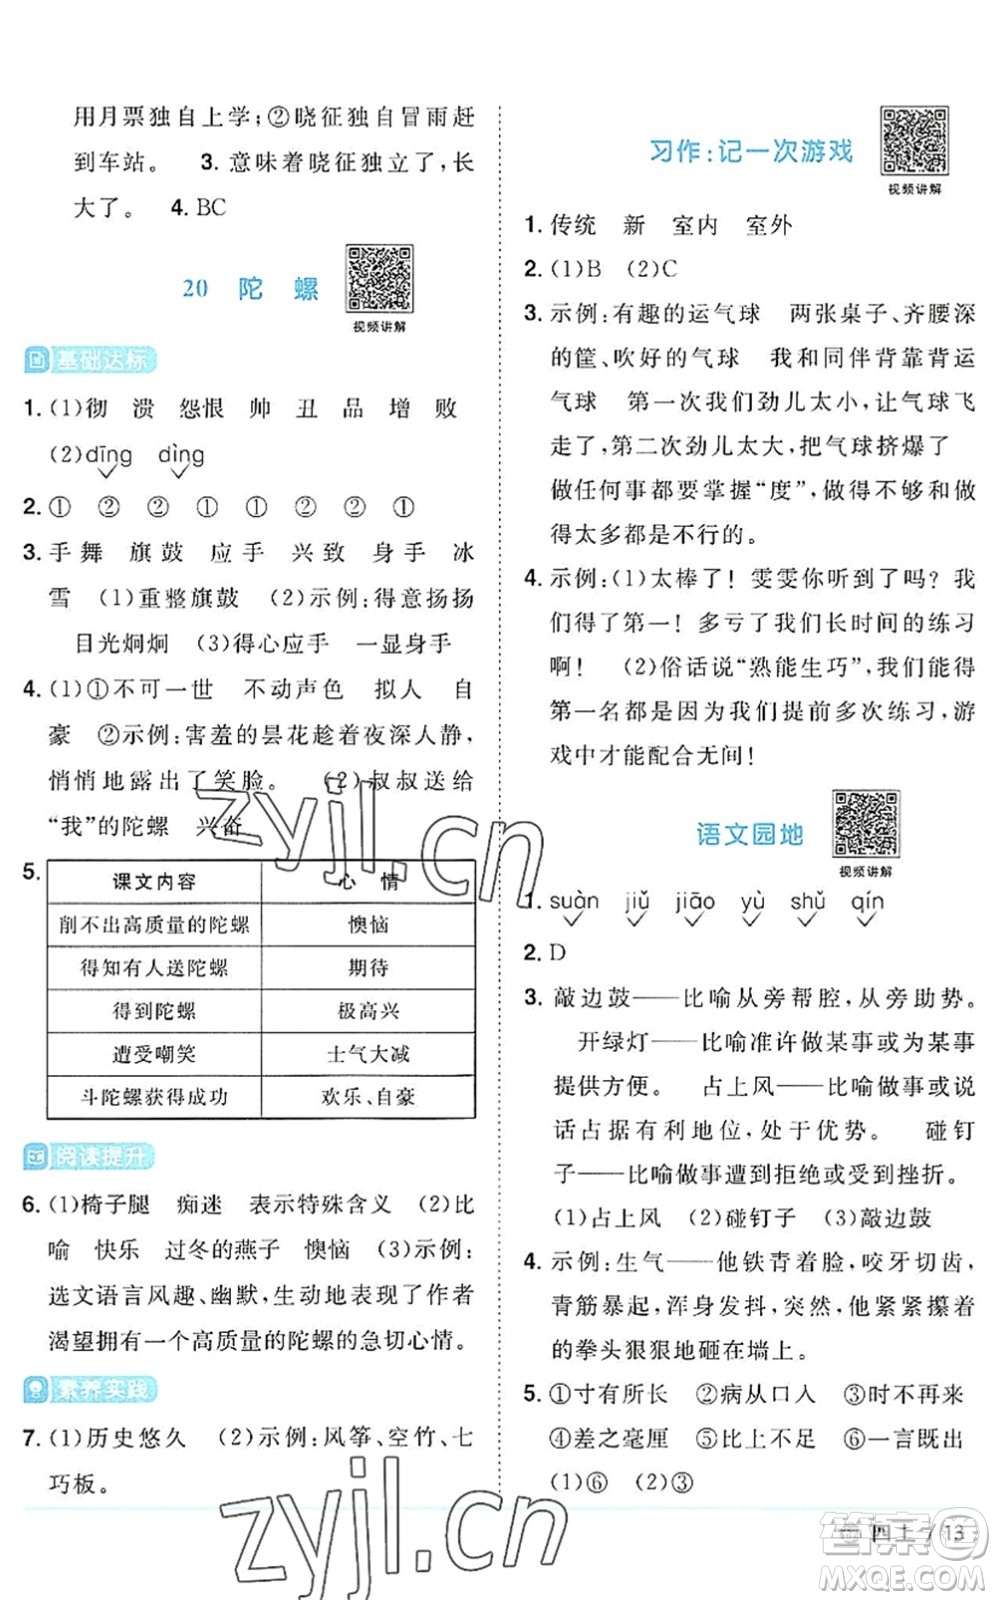 用月票独自上学;②晓征独自冒雨赶
到车站。 3. 意味着晓征独立了,长
大了。 4. BC
20 陀 螺
视频讲解
基础达标
1. (1)彻 溃 怨恨 帅 丑 品 增 败
(2)dīng dìng
2. ① ② ② ① ① ② ② ①
3. 手舞 旗鼓 应手 兴致 身手 冰
雪 (1)重整旗鼓 (2)示例:得意扬扬
目光炯炯 (3)得心应手 一显身手
4. (1)①不可一世 不动声色 拟人 自
豪 ②示例:害羞的昙花趁着夜深人静,
悄悄地露出了笑脸。 (2)叔叔送给
“我”的陀螺 兴奋
5.
课文内容 心 情
削不出高质量的陀螺 懊恼
得知有人送陀螺 期待
得到陀螺 极高兴
遭受嘲笑 士气大减
斗陀螺获得成功 欢乐、自豪
阅读提升
6. (1)椅子腿 痴迷 表示特殊含义 (2)比
喻 快乐 过冬的燕子 懊恼 (3)示例:
选文语言风趣、幽默,生动地表现了作者
渴望拥有一个高质量的陀螺的急切心情。
素养实践
7. (1)历史悠久 (2)示例:风筝、空竹、七
巧板。
习作:记一次游戏
视频讲解
1. 传统 新 室内 室外
2. (1)B (2)C
3. 示例:有趣的运气球 两张桌子、齐腰深
的筐、吹好的气球 我和同伴背靠背运
气球 第一次我们劲儿太小,让气球飞
走了,第二次劲儿太大,把气球挤爆了
做任何事都要掌握“度”,做得不够和做
得太多都是不行的。
4. 示例:(1)太棒了!雯雯你听到了吗?我
们得了第一!多亏了我们长时间的练习
啊! (2)俗话说“熟能生巧”,我们能得
第一名都是因为我们提前多次练习,游
戏中才能配合无间!
语文园地
视频讲解
1. suàn jiǔ jiāo yù shǔ qín
2. D
3. 敲边鼓——比喻从旁帮腔,从旁助势。
开绿灯——比喻准许做某事或为某事
提供方便。 占上风——比喻做事或说
话占据有利地位,处于优势。 碰钉
子——比喻做事遭到拒绝或受到挫折。
(1)占上风 (2)碰钉子 (3)敲边鼓
4. 示例:生气——他铁青着脸,咬牙切齿,
青筋暴起,浑身发抖,突然,他紧紧攥着
的拳头狠狠地砸在墙上。
5. ①寸有所长 ②病从口入 ③时不再来
④差之毫厘 ⑤比上不足 ⑥一言既出
(1)⑥ (2)③
四上/13
zyjl.cn
zyjl.cn
答案圈
MXQE.COM